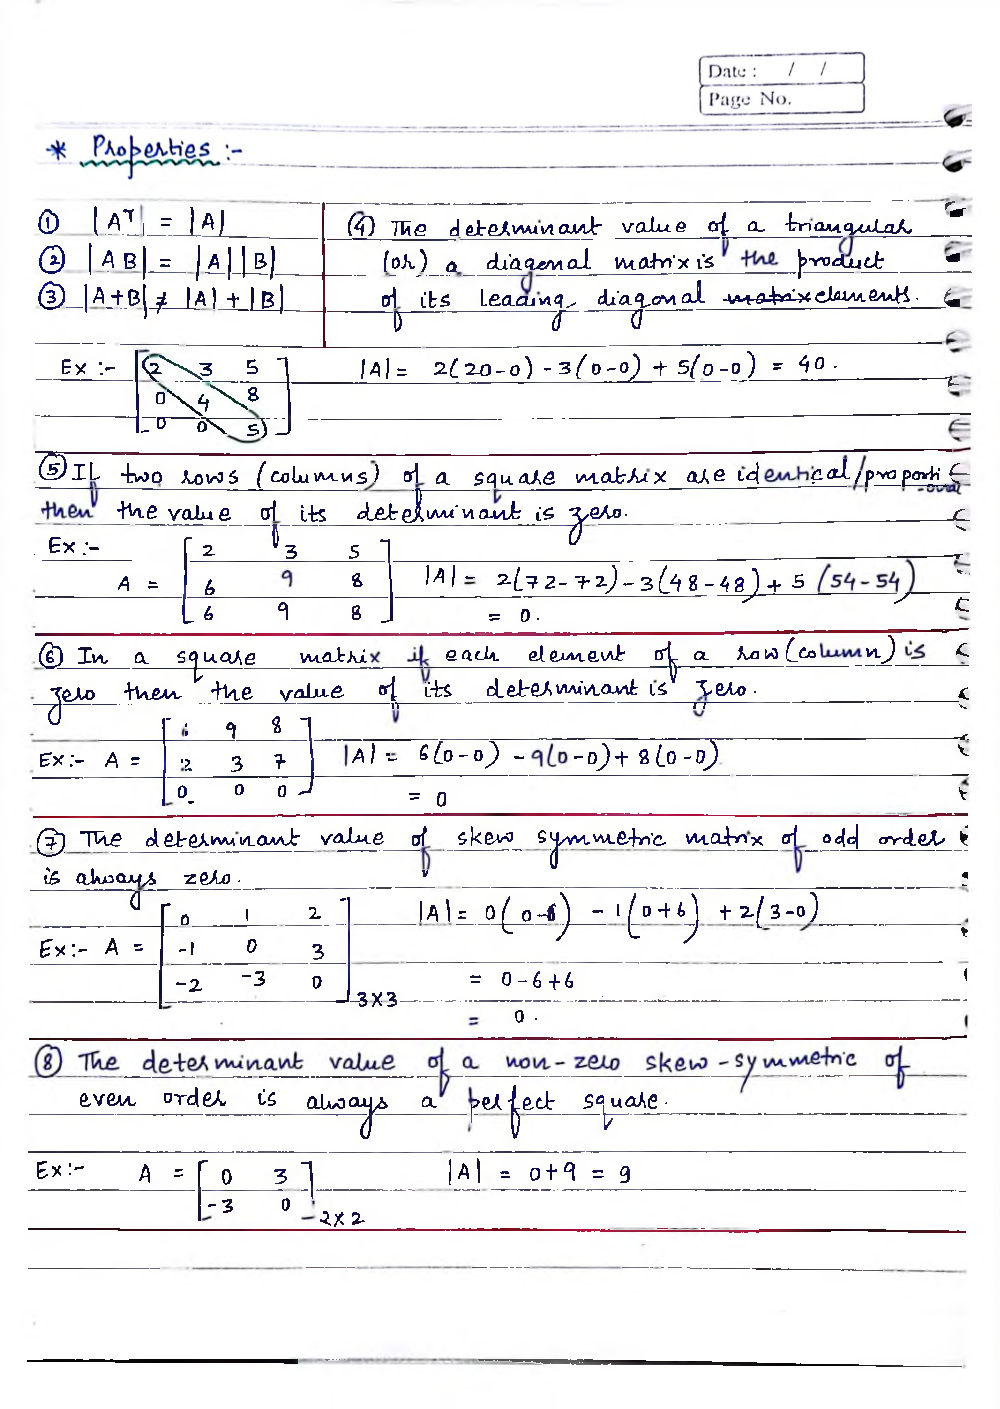 Date : / /
Page No.
* Properties :-
① |Aᵀ| = |A|
② |AB| = |A||B|
③ |A+B| ≠ |A|+|B|
④ The determinant value of a triangular
(or) a diagonal matrix is the product
of its leading diagonal matrix elements.
Ex :- [2 3 5
0 4 8
0 0 5]
|A| = 2(20-0) - 3(0-0) + 5(0-0) = 40.
⑤ If two rows (columns) of a square matrix are identical/proporti
-onal
then the value of its determinant is zero.
Ex :-
A = [2 3 5
6 9 8
6 9 8]
|A| = 2(72-72) - 3(48-48) + 5(54-54)
= 0.
⑥ In a square matrix if each element of a row(column) is
zero then the value of its determinant is zero.
Ex:- A = [6 9 8
2 3 7
0 0 0]
|A| = 6(0-0) - 9(0-0) + 8(0-0)
= 0
⑦ The determinant value of skew symmetric matrix of odd order
is always zero.
Ex:- A = [0 1 2
-1 0 3
-2 -3 0] 3×3
|A| = 0(0-6) - 1(0+6) + 2(3-0)
= 0-6+6
= 0.
⑧ The determinant value of a non-zero skew-symmetric of
even order is always a perfect square.
Ex:- A = [0 3
-3 0] 2×2
|A| = 0+9 = 9